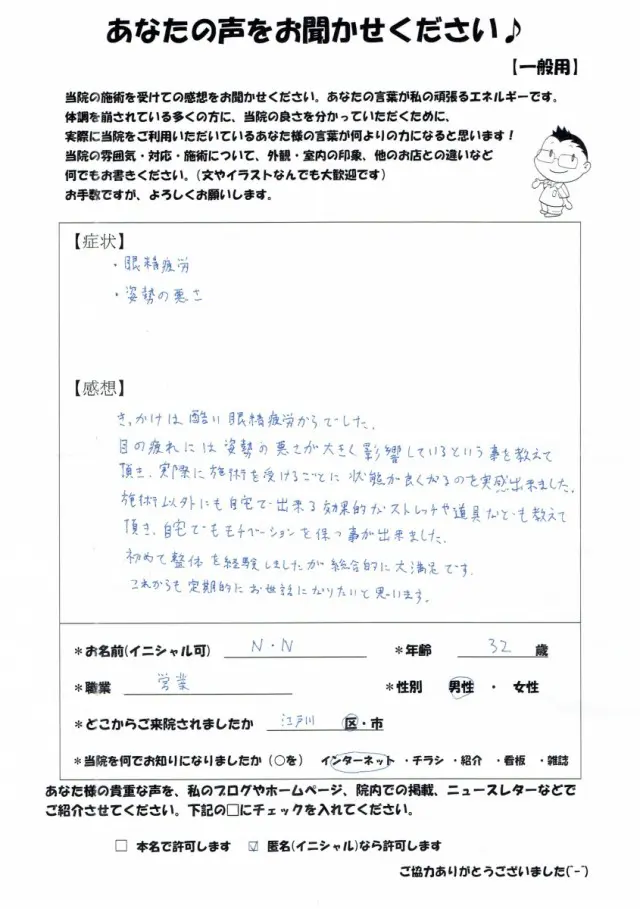 あなたの声をお聞かせください♪
【一般用】
当院の施術を受けての感想をお聞かせください。あなたの言葉が私の頑張るエネルギーです。
体調を崩されている多くの方に、当院の良さを分かっていただくために、
実際に当院をご利用いただいているあなた様の言葉が何よりの力になると思います！
当院の雰囲気・対応・施術について、外観・室内の印象、他のお店との違いなど
何でもお書きください。(文やイラストなんでも大歓迎です)
お手数ですが、よろしくお願いします。
【症状】
・眼精疲労
・姿勢の悪さ
【感想】
きっかけは酷い眼精疲労からでした。
目の疲れには姿勢の悪さが大きく影響しているという事を教えて
頂き、実際に施術を受けるごとに状態が良くなるのを実感出来ました。
施術以外にも自宅で出来る効果的なストレッチや道具なども教えて
頂き、自宅でもモチベーションを保つ事が出来ました。
初めて整体を経験しましたが総合的に大満足です。
これからも定期的にお世話になりたいと思います。
＊お名前(イニシャル可) N・N ＊年齢 32 歳
＊職業 営業 ＊性別 男性 ・ 女性
＊どこからご来院されましたか 江戸川 区・市
＊当院を何でお知りになりましたか(○を) インターネット ・チラシ ・紹介 ・看板 ・雑誌
あなた様の貴重な声を、私のブログやホームページ、院内での掲載、ニュースレターなどで
ご紹介させてください。下記の□にチェックを入れてください。
□ 本名で許可します ☑ 匿名(イニシャル)なら許可します
ご協力ありがとうございました(^-^)